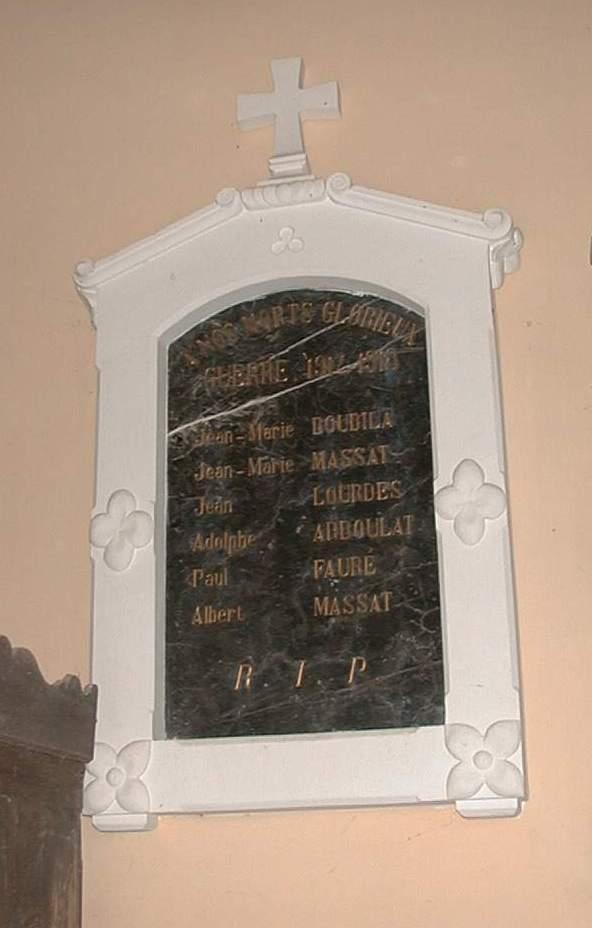 A NOS MORTS GLORIEUX
GUERRE 1914-1918
Jean-Marie DOUBILA
Jean-Marie MASSAT
Jean LOURDES
Adolphe ABBOULAT
Paul FAURÉ
Albert MASSAT
R. I. P.